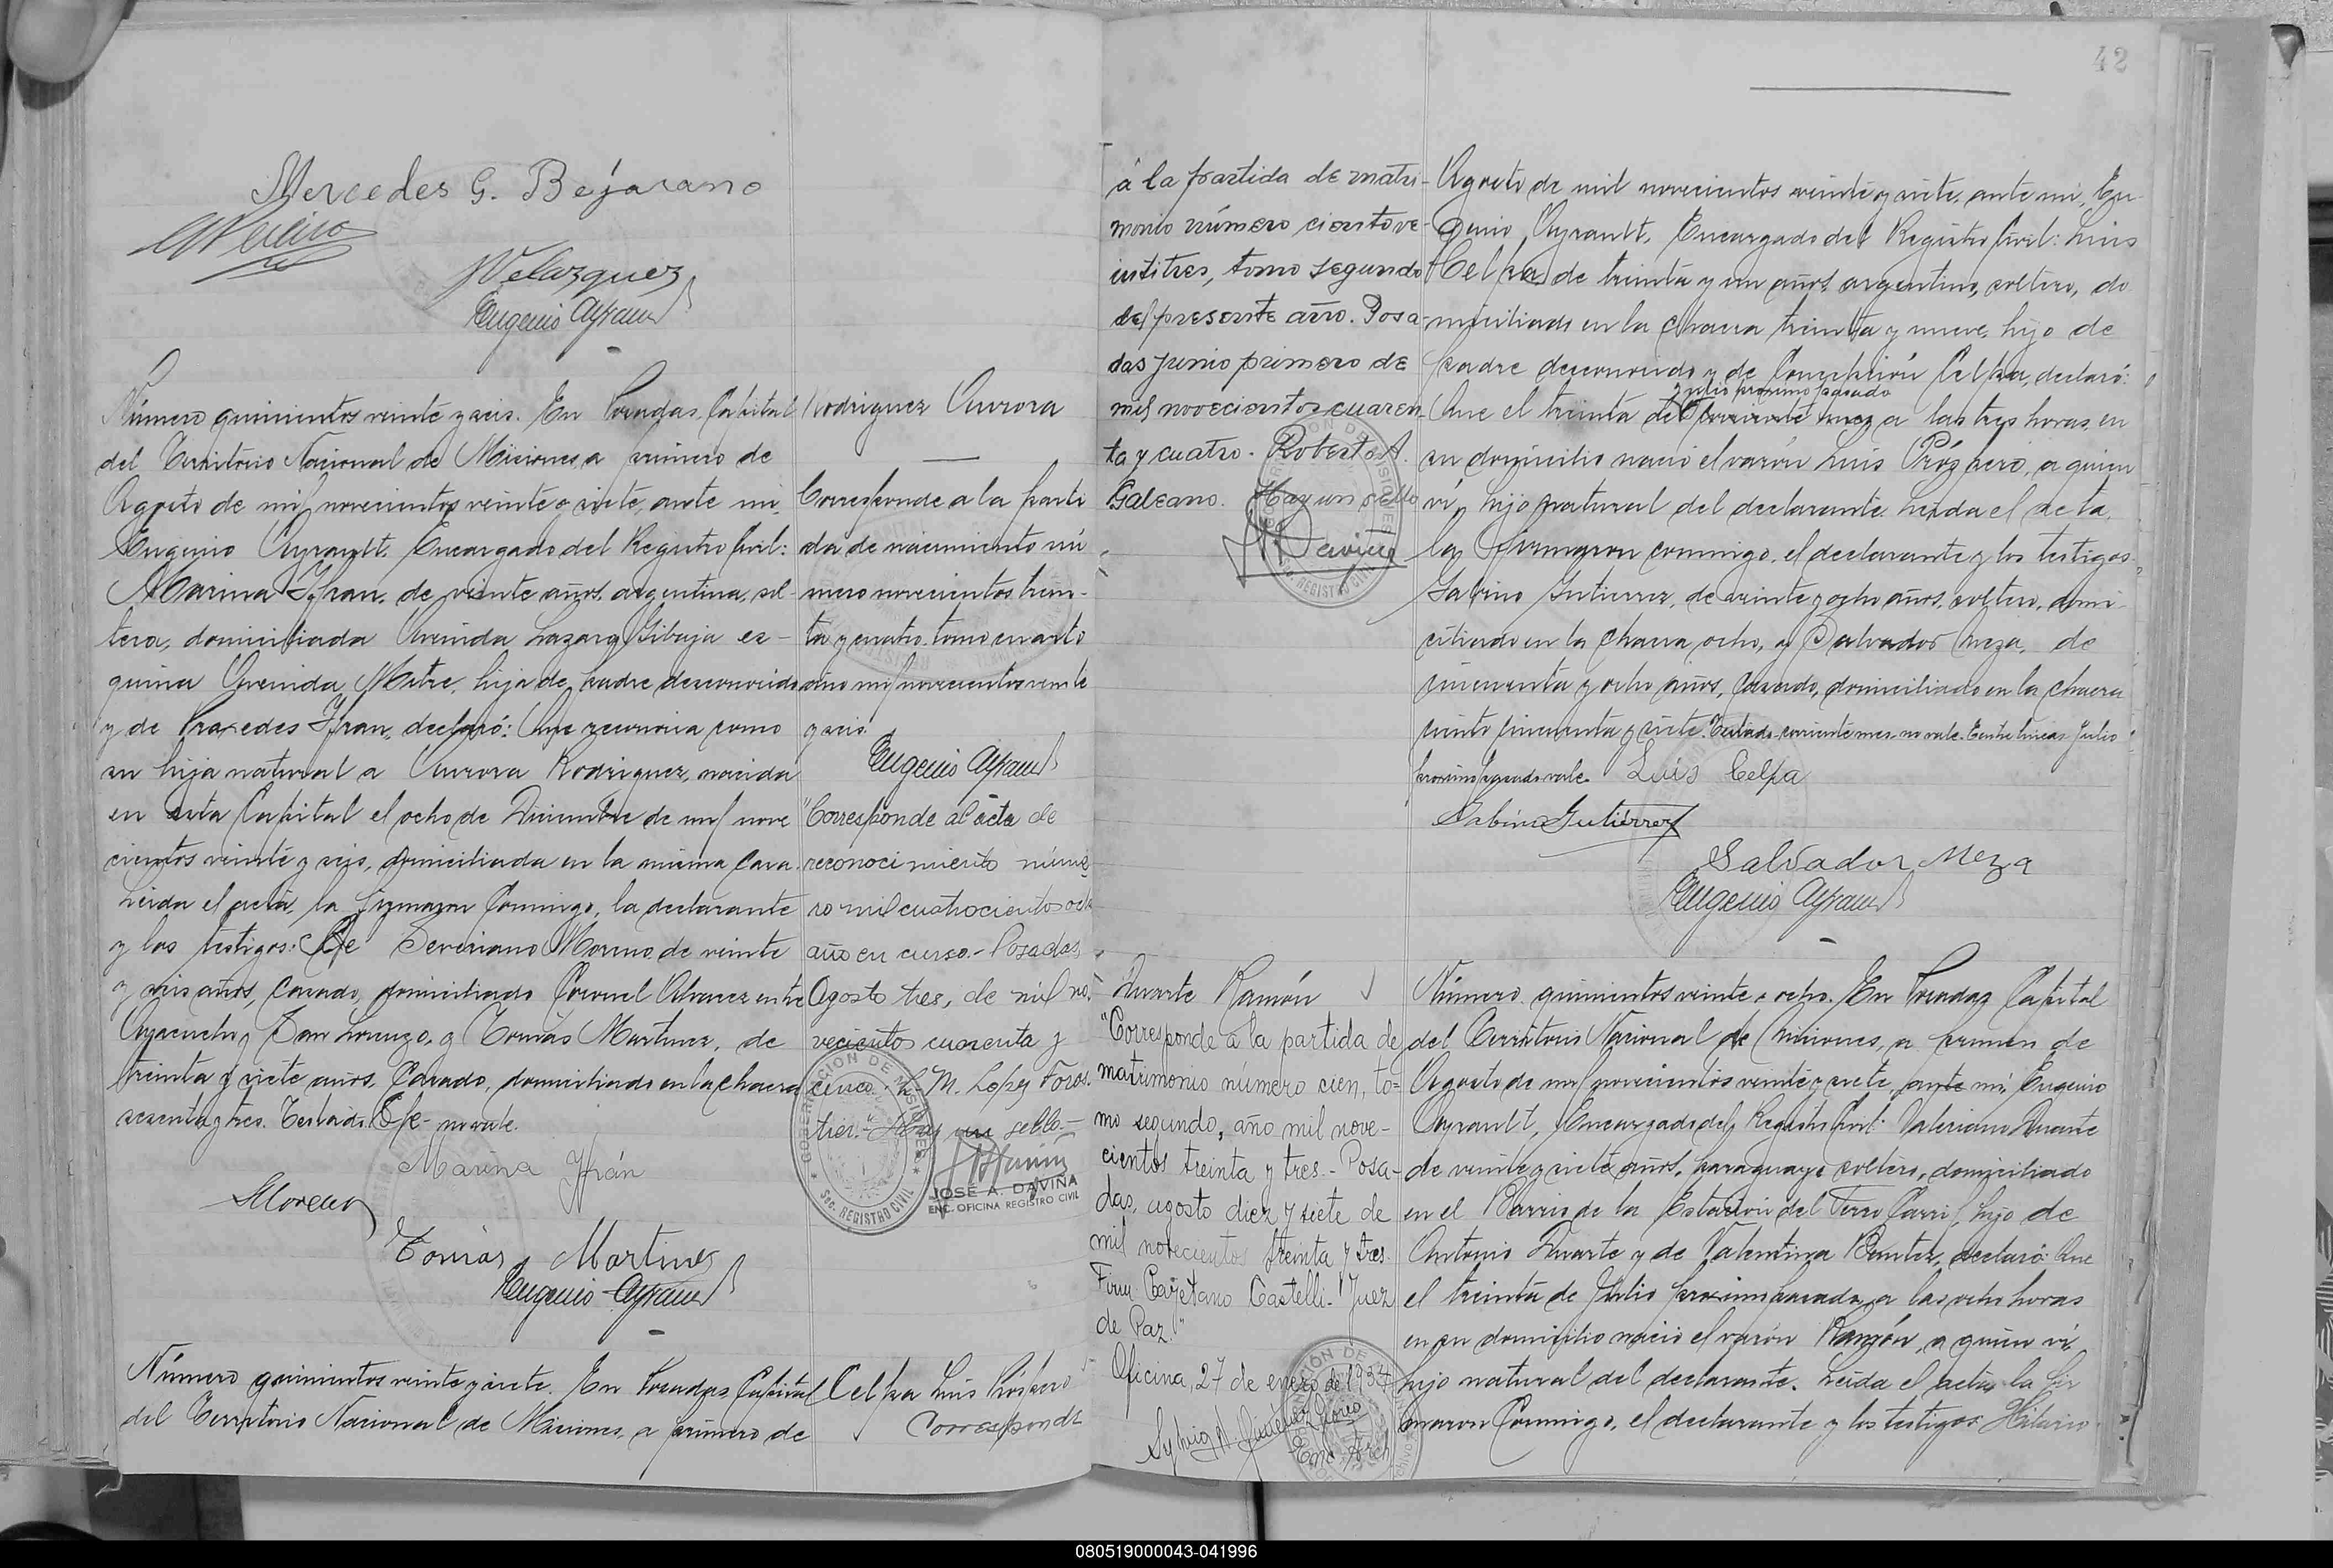 Mercedes G. Bejarano
JVelazquez
Eugenio Ayrault
Número quinientos veinte y seis. En Posadas, Capital
del Territorio Nacional de Misiones, a primero de
Agosto de mil novecientos veinte y siete, ante mi,
Eugenio Ayrault, Encargado del Registro Civil:
Marina Yfran, de veinte años, argentina, sol-
tera, domiciliada Avenida Lazaro Gibaja es-
quina Avenida Mitre, hija de padre desconocido
y de Praxedes Yfran, declaró: Que reconocia como
su hija natural a Aurora Rodriguez, nacida
en esta Capital el ocho de Diciembre de mil nove
cientos veinte y seis, domiciliada en la misma casa.
Leida el acta, la firmaron conmigo, la declarante
y los testigos: Severiano Moreno, de veinte
y seis años, casado, domiciliado Coronel Alvarez entre
Ayacucho y San Lorenzo, y Tomás Martinez, de
treinta y siete años, casado, domiciliado en la chacra
sesenta y tres. Testado. no vale.
Marina Yfrán
SMoreno
Tomás Martinez
Eugenio Ayrault
Número quinientos veinte y siete. En Posadas, Capital
del Territorio Nacional de Misiones, a primero de
Rodriguez Aurora
Corresponde a la parti
da de nacimiento nú
mero novecientos trein-
ta y cuatro, tomo cuarto
año mil novecientos veinte
y seis.
Eugenio Ayrault
"Corresponde al acta de
reconocimiento núme-
ro mil cuatrocientos
año en curso.- Posadas,
Agosto tres, de mil no-
vecientos cuarenta y
cinco. L. M. Lopez Foros.
Hay un sello.-
JOSÉ A. DAVIÑA
ENC. OFICINA REGISTRO CIVIL
Celpa Luis Próspero
Corresponde
42
á la partida de matri-
monio número ciento ve-
intitres, tomo segundo
del presente año. Posa-
das junio primero de
mil novecientos cuaren-
ta y cuatro. Roberto A.
Galeano. Hay un sello
Agosto de mil novecientos veinte y siete, ante mi, Eu-
genio Ayrault, Encargado del Registro Civil: Luis
Celpa, de treinta y un años, argentino, soltero, do
miciliado en la chacra treinta y nueve, hijo de
padre desconocido y de Concepción Celpa, declaró:
julio proximo pasado
Que el treinta del corriente mes a las tres horas, en
su domicilio nació el varón Luis Próspero, a quien
ví, hijo natural del declarante. Leida el acta
la firmaron conmigo, el declarante y los testigos
Sabino Gutierrez, de veinte y ocho años, soltero, domi-
ciliado en la chacra ocho, y Salvador Meza, de
cincuenta y ocho años, casado, domiciliado en la chacra
ciento cincuenta y siete. Testado-corriente mes-no vale. Entre lineas-Julio
proximo pasado vale. Luis Celpa
Sabino Gutierrez
Salvador Meza
Eugenio Ayrault
Duarte Ramón
"Corresponde a la partida de
matrimonio número cien, to-
mo segundo, año mil nove-
cientos treinta y tres.- Posa-
das, agosto diez y siete de
mil novecientos treinta y tres.
Firm. Cayetano Castelli- Juez
de Paz."
Oficina, 27 de enero de 1934
Número quinientos veinte y ocho. En Posadas, Capital
del Territorio Nacional de Misiones, a primero de
Agosto de mil novecientos veinte y siete, ante mi, Eugenio
Ayrault, Encargado del Registro Civil: Valeriano Duarte
de veinte y siete años, paraguayo, soltero, domiciliado
en el Barrio de la Estación del Ferro Carril, hijo de
Antonio Duarte y de Valentina Benitez, declaró: Que
el treinta de Julio proximo pasado, a las ocho horas
en su domicilio nació el varón Ramón, a quien ví
hijo natural del declarante. Leida el acta, la fir
maron conmigo, el declarante y los testigos: Hilario
080519000043-041996